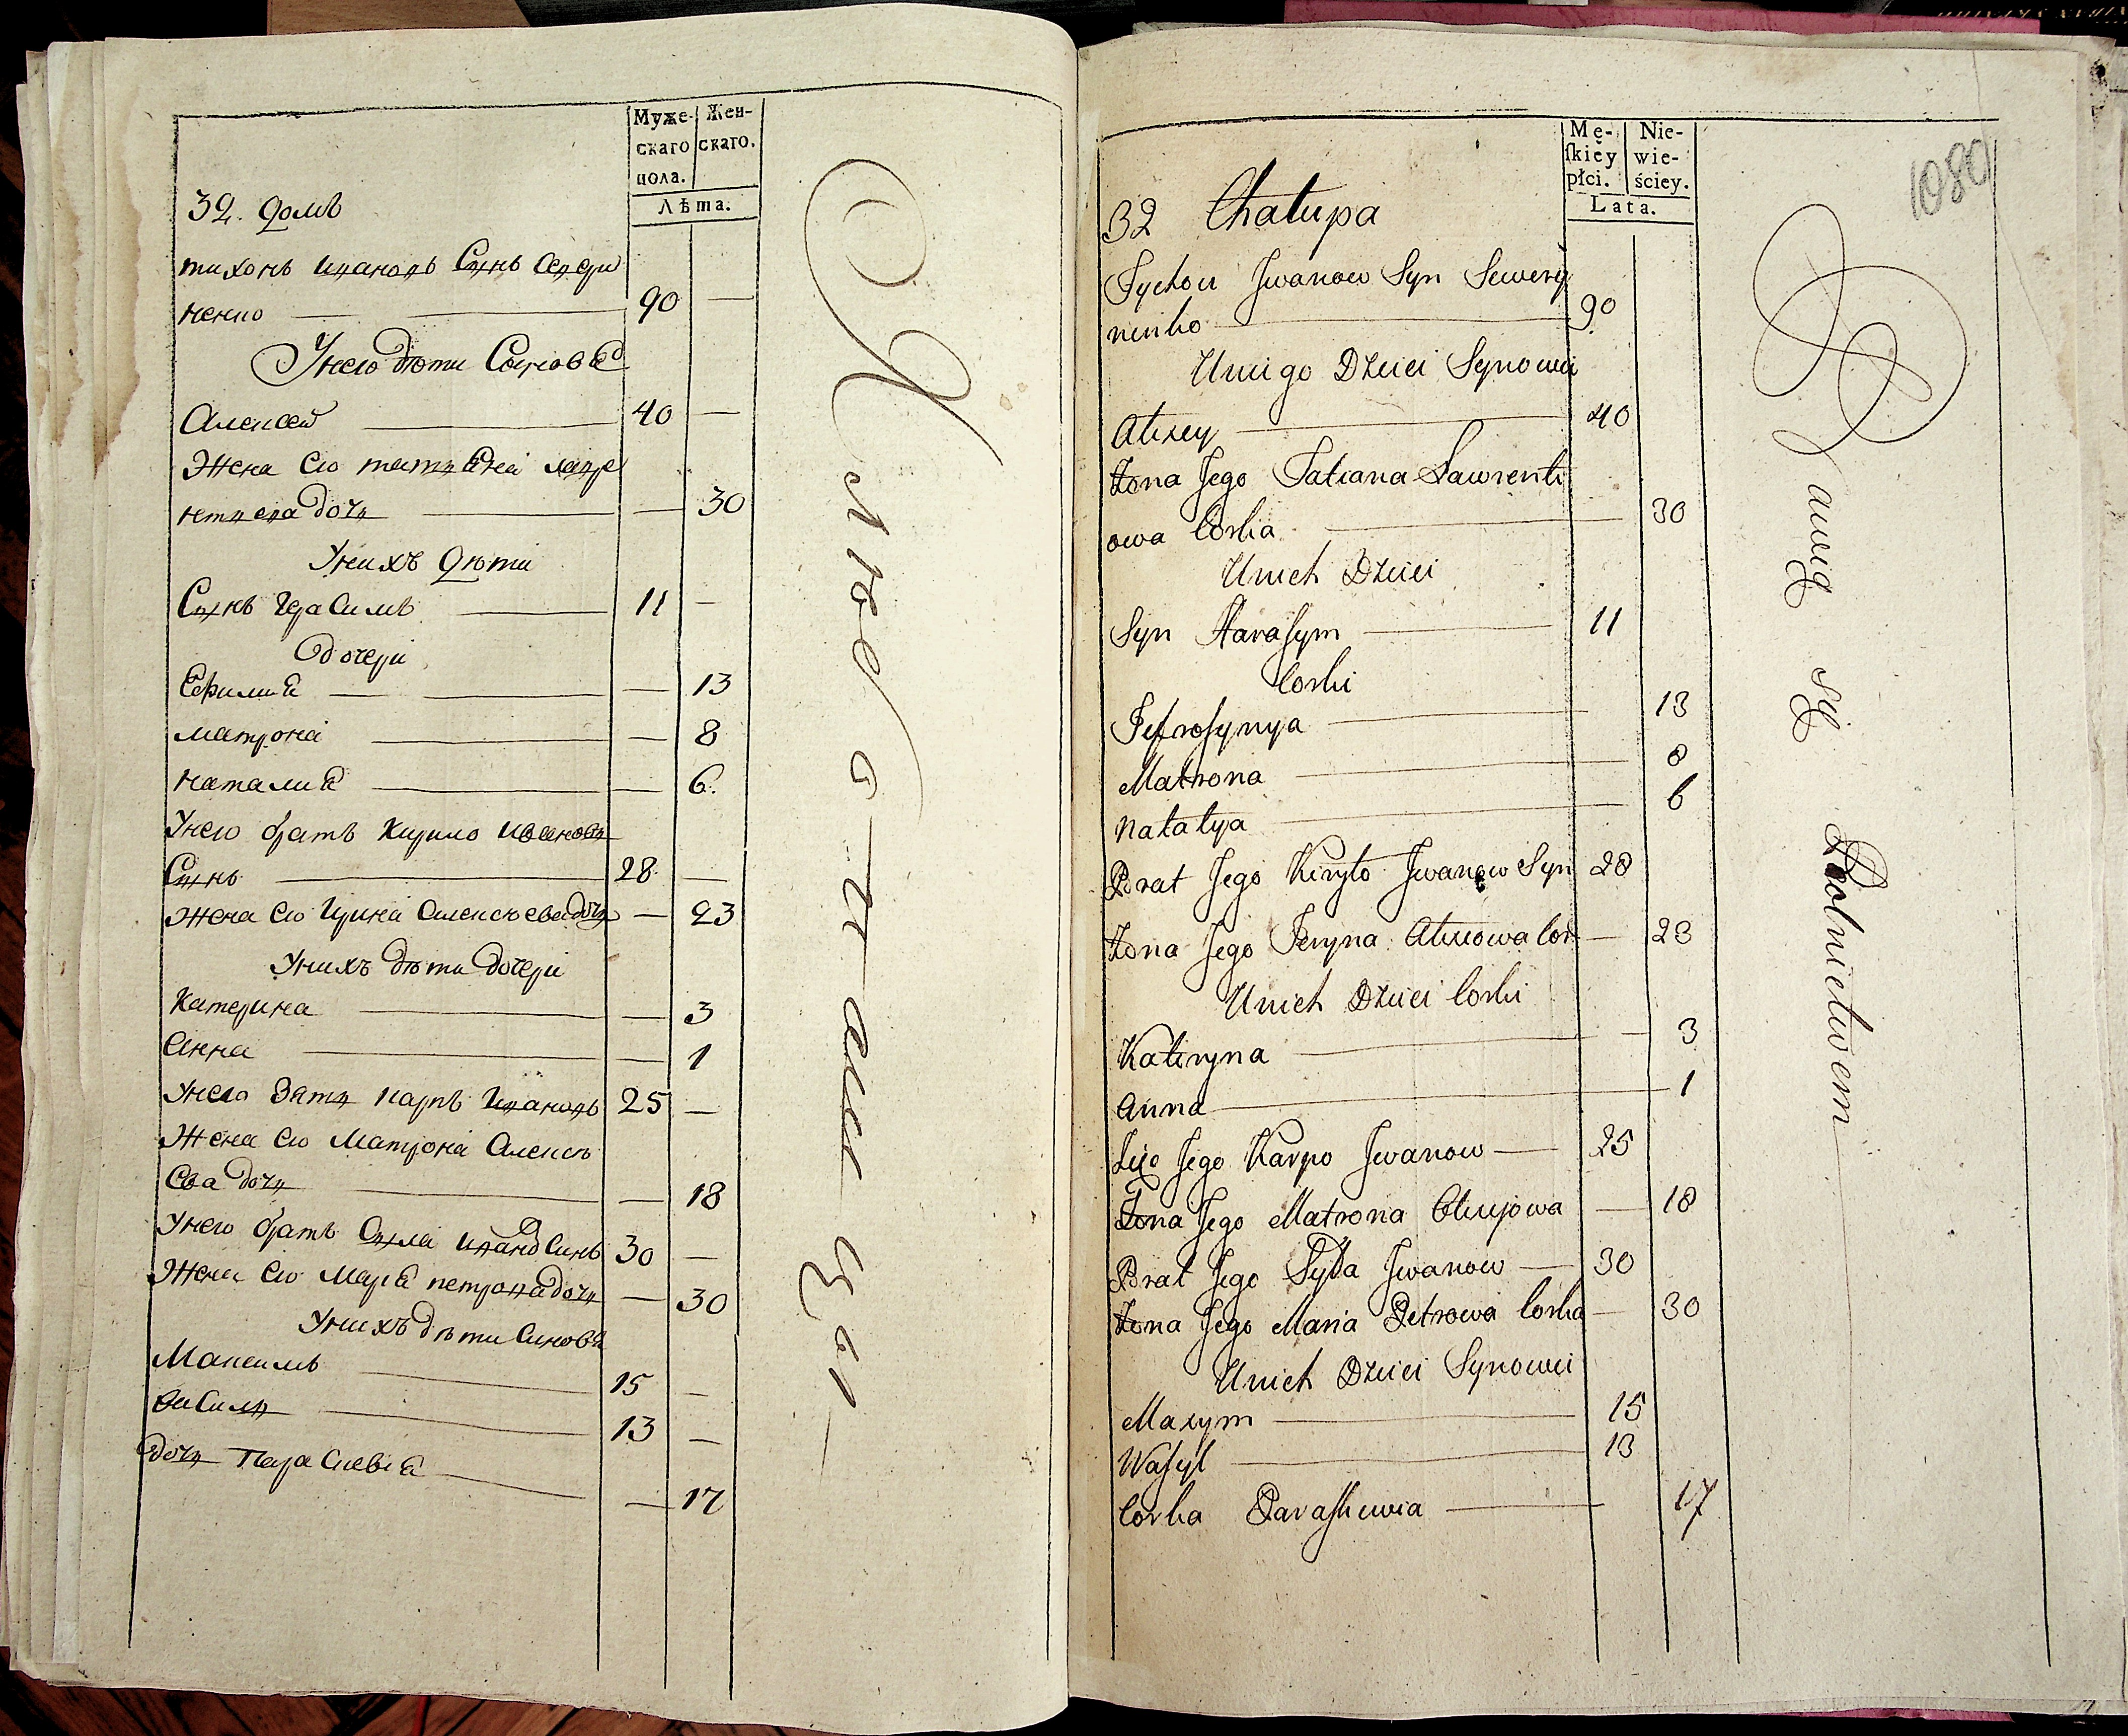 Муже-
скаго
пола.
Жен-
скаго.
Лѣта.
32. домъ
тихонъ ивановъ Сынъ Севери
ненко 90 —
У него дѣти Сыновья
Алексей 40 —
Жена Его татьяна лавре
нтьева дочь — 30
У нихъ дѣти
Сынъ Герасимъ 11 —
дочери
— 13
матрона — 8
наталия — 6.
У него братъ Кирило Ивановъ
Сынъ 28 —
Жена Его Ирина Алексѣева дочь — 23
У нихъ дѣти дочери
Катерина — 3
Анна — 1
У него Зять карпъ Ивановъ 25 —
Жена Его Матрона Алексѣ
Ева дочь — 18
У него братъ Сыла Сынъ 30 —
Жена Его Мария петрова дочь — 30
У нихъ дѣти Синовья
Максимъ 15 —
Василь 13 —
дочь Параскевия — 17
Mę-
ſkiéy
płci.
Nie-
wie-
ściey.
Lata.
1080
32 Chałupa
Tychon Jwanow Syn Sewery
nenko 90
U niego Dzieci Synowie
Alexey 40
Żona Jego Tatiana Lawrenti
owa Corka 30
U nich Dzieci
Syn Haraſym 11
Corki
13
Matrona 8
Natalya 6
Brat Jego Kiryło Jwanow Syn 28
Żona Jego Jeryna Alexiowa Cor — 23
U nich Dzieci Corki
Kateryna — 3
Anna 1
Jego Karpo Jwanow 25
Żona Jego Matrona — 18
Brat Jego Syła Jwanow 30
Żona Jego Maria Petrowa Corka — 30
U nich Dzieci Synowie
Maxym 15
Waſyl 13
Corka Paraſkewia 17
bawią się Rolnictwem